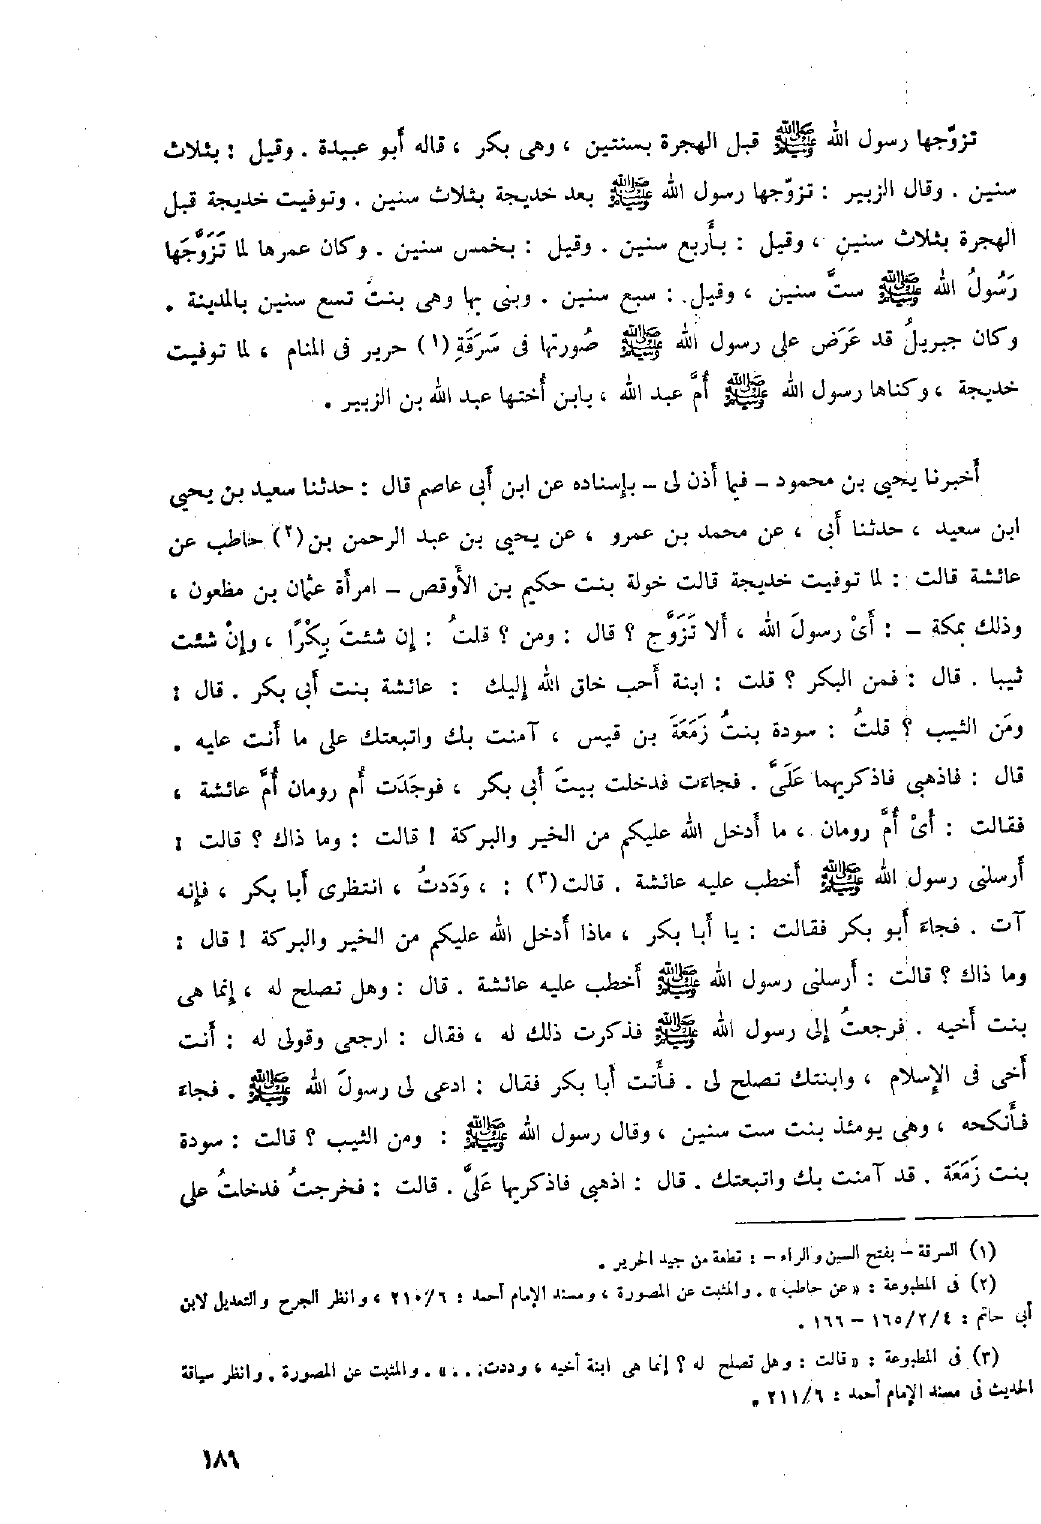 تزوّجها رسول الله ﷺ قبل الهجرة بسنتين ، وهى بكر ، قاله أَبو عبيدة . وقيل : بثلاث
سنين . وقال الزبير : تزوّجها رسول الله ﷺ بعد خديجة بثلاث سنين . وتوفيت خديجة قبل
الهجرة بثلاث سنين ، وقيل : بأَربع سنين . وقيل : بخمس سنين . وكان عمرها لما تَزَوَّجَها
رَسُولُ الله ﷺ ستَّ سنين ، وقيل : سبع سنين . وبنى بها وهى بنتُ تسع سنين بالمدينة .
وكان جبريلُ قد عَرَض على رسول الله ﷺ صُورتها فى سَرَقَةِ (١) حرير فى المنام ، لما توفيت
خديجة ، وكناها رسول الله ﷺ أُمَّ عبد الله ، بابن أُختها عبد الله بن الزبير .
أَخبرنا يحيى بن محمود – فيما أَذن لى – بإِسناده عن ابن أَبى عاصم قال : حدثنا سعيد بن يحيى
ابن سعيد ، حدثنا أَبى ، عن محمد بن عمرو ، عن يحيى بن عبد الرحمن بن (٢) حاطب عن
عائشة قالت : لما توفيت خديجة قالت خولة بنت حكيم بن الأَوقص – امرأَة عثمان بن مظعون ،
وذلك بمكة – : أَىْ رسولَ الله ، أَلا تَزَوَّج ؟ قال : ومن ؟ قلتُ : إِن شئتَ بِكْرًا ، وإِنْ شئت
ثيبا . قال : فمن البكر ؟ قلت : ابنة أَحب خلق الله إِليك : عائشة بنت أَبى بكر . قال :
ومَن الثيب ؟ قلتُ : سودة بنتُ زَمَعَةَ بن قيس ، آمنت بك واتبعتك على ما أَنت عليه .
قال : فاذهبى فاذكريهما عَلَىَّ . فجاءَت فدخلت بيتَ أَبى بكر ، فوجَدَت أُم رومان أُمَّ عائشة ،
فقالت : أَىْ أُمَّ رومان ، ما أَدخل الله عليكم من الخير والبركة ! قالت : وما ذاك ؟ قالت :
أَرسلنى رسول الله ﷺ أَخطب عليه عائشة . قالت (٣) : ، وَدَدتُ ، انتظرى أَبا بكر ، فإِنه
آت . فجاءَ أَبو بكر فقالت : يا أَبا بكر ، ماذا أَدخل الله عليكم من الخير والبركة ! قال :
وما ذاك ؟ قالت : أَرسلنى رسول الله ﷺ أَخطب عليه عائشة . قال : وهل تصلح له ، إِنما هى
بنت أَخيه . فرجعتُ إِلى رسول الله ﷺ فذكرت ذلك له ، فقال : ارجعى وقولى له : أَنت
أَخى فى الإِسلام ، وابنتك تصلح لى . فأَتت أَبا بكر فقال : ادعى لى رسولَ الله ﷺ . فجاءَ
فأَنكحه ، وهى يومئذ بنت ست سنين ، وقال رسول الله ﷺ : ومن الثيب ؟ قالت : سودة
بنت زَمَعَة . قد آمنت بك واتبعتك . قال : اذهبى فاذكريها عَلَىَّ . قالت : فخرجتُ فدخلتُ على
(١) السرقة – بفتح السين والراء – : قطعة من جيد الحرير .
(٢) فى المطبوعة : «عن حاطب» . والمثبت عن المصورة ، ومسند الإمام أحمد : ٢١٠/٦ ، وانظر الجرح والتعديل لابن
أبى حاتم : ١٦٥/٢/٤ – ١٦٦ .
(٣) فى المطبوعة : «قالت : وهل تصلح له ؟ إنما هى ابنة أخيه ، وددت: ...» . والمثبت عن المصورة . وانظر سياقة
الحديث فى مسند الإمام أحمد : ٢١١/٦ .
١٨٩